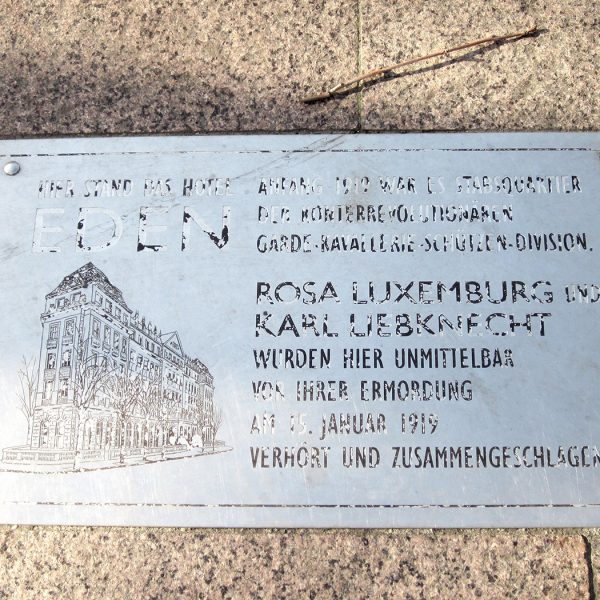 HIER STAND DAS HOTEL
EDEN
ANFANG 1919 WAR ES STABSQUARTIER
DER KONTERREVOLUTIONÄREN
GARDE-KAVALLERIE-SCHÜTZEN-DIVISION.
ROSA LUXEMBURG UND
KARL LIEBKNECHT
WURDEN HIER UNMITTELBAR
VOR IHRER ERMORDUNG
AM 15. JANUAR 1919
VERHÖRT UND ZUSAMMENGESCHLAGEN